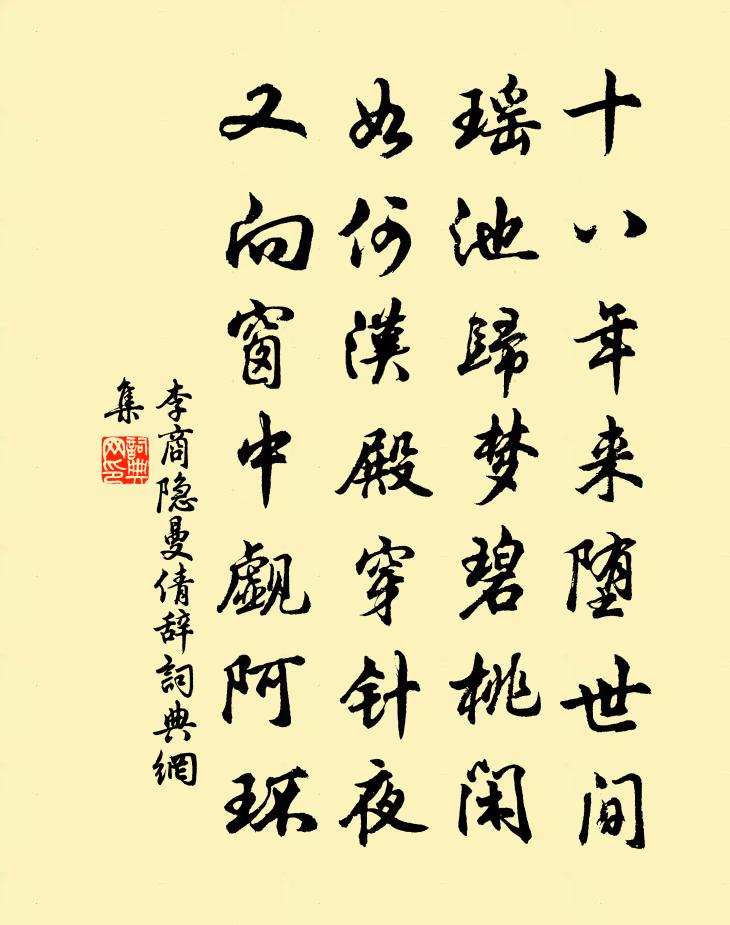 十八年来堕世间
瑶池歸梦碧桃闲
如何漢殿穿针夜
又向窗中觑阿环
李商隐曼倩辞詞典網
集
詞典
网印